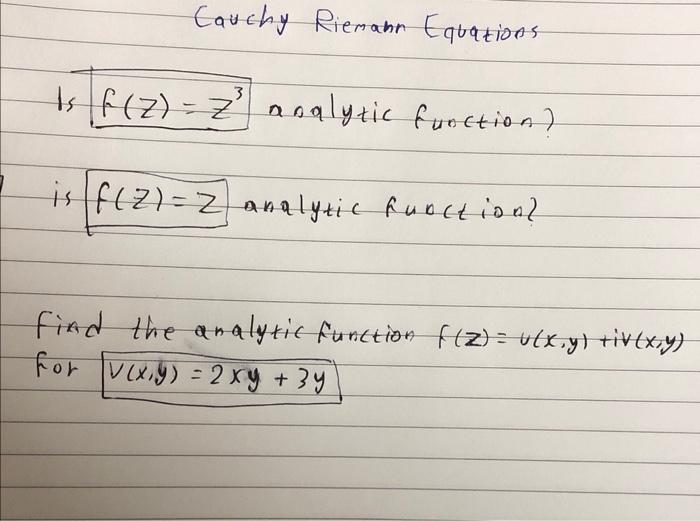 Cauchy Riemann Equations
Is f(z) = z³ analytic function?
is f(z) = z analytic function?
Find the analytic function f(z) = u(x,y) + iv(x,y)
For v(x,y) = 2xy + 3y